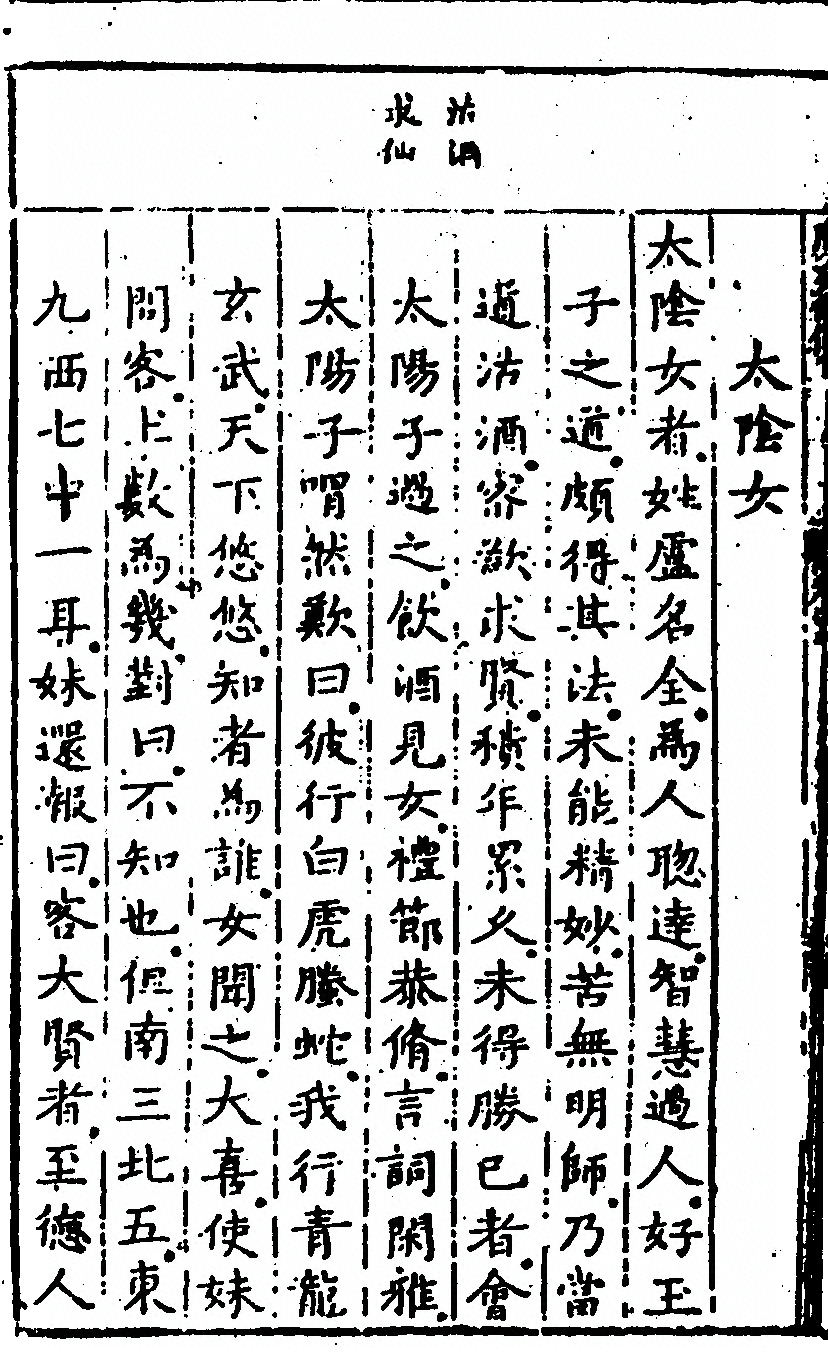 沽酒
求仙
太陰女
太陰女者姓盧名全為人聰達智慧過人好玉
子之道頗得其法未能精妙苦無明師乃當
道沽酒密欲求賢積年累久未得勝已者會
太陽子過之飲酒見女禮節恭脩言詞閑雅
太陽子喟然歎曰彼行白虎螣蛇我行青龍
玄武天下悠悠知者為誰女聞之大喜使妹
問客土數為幾對曰不知也但南三北五東
九西七中一耳妹還報曰客大賢者至德人